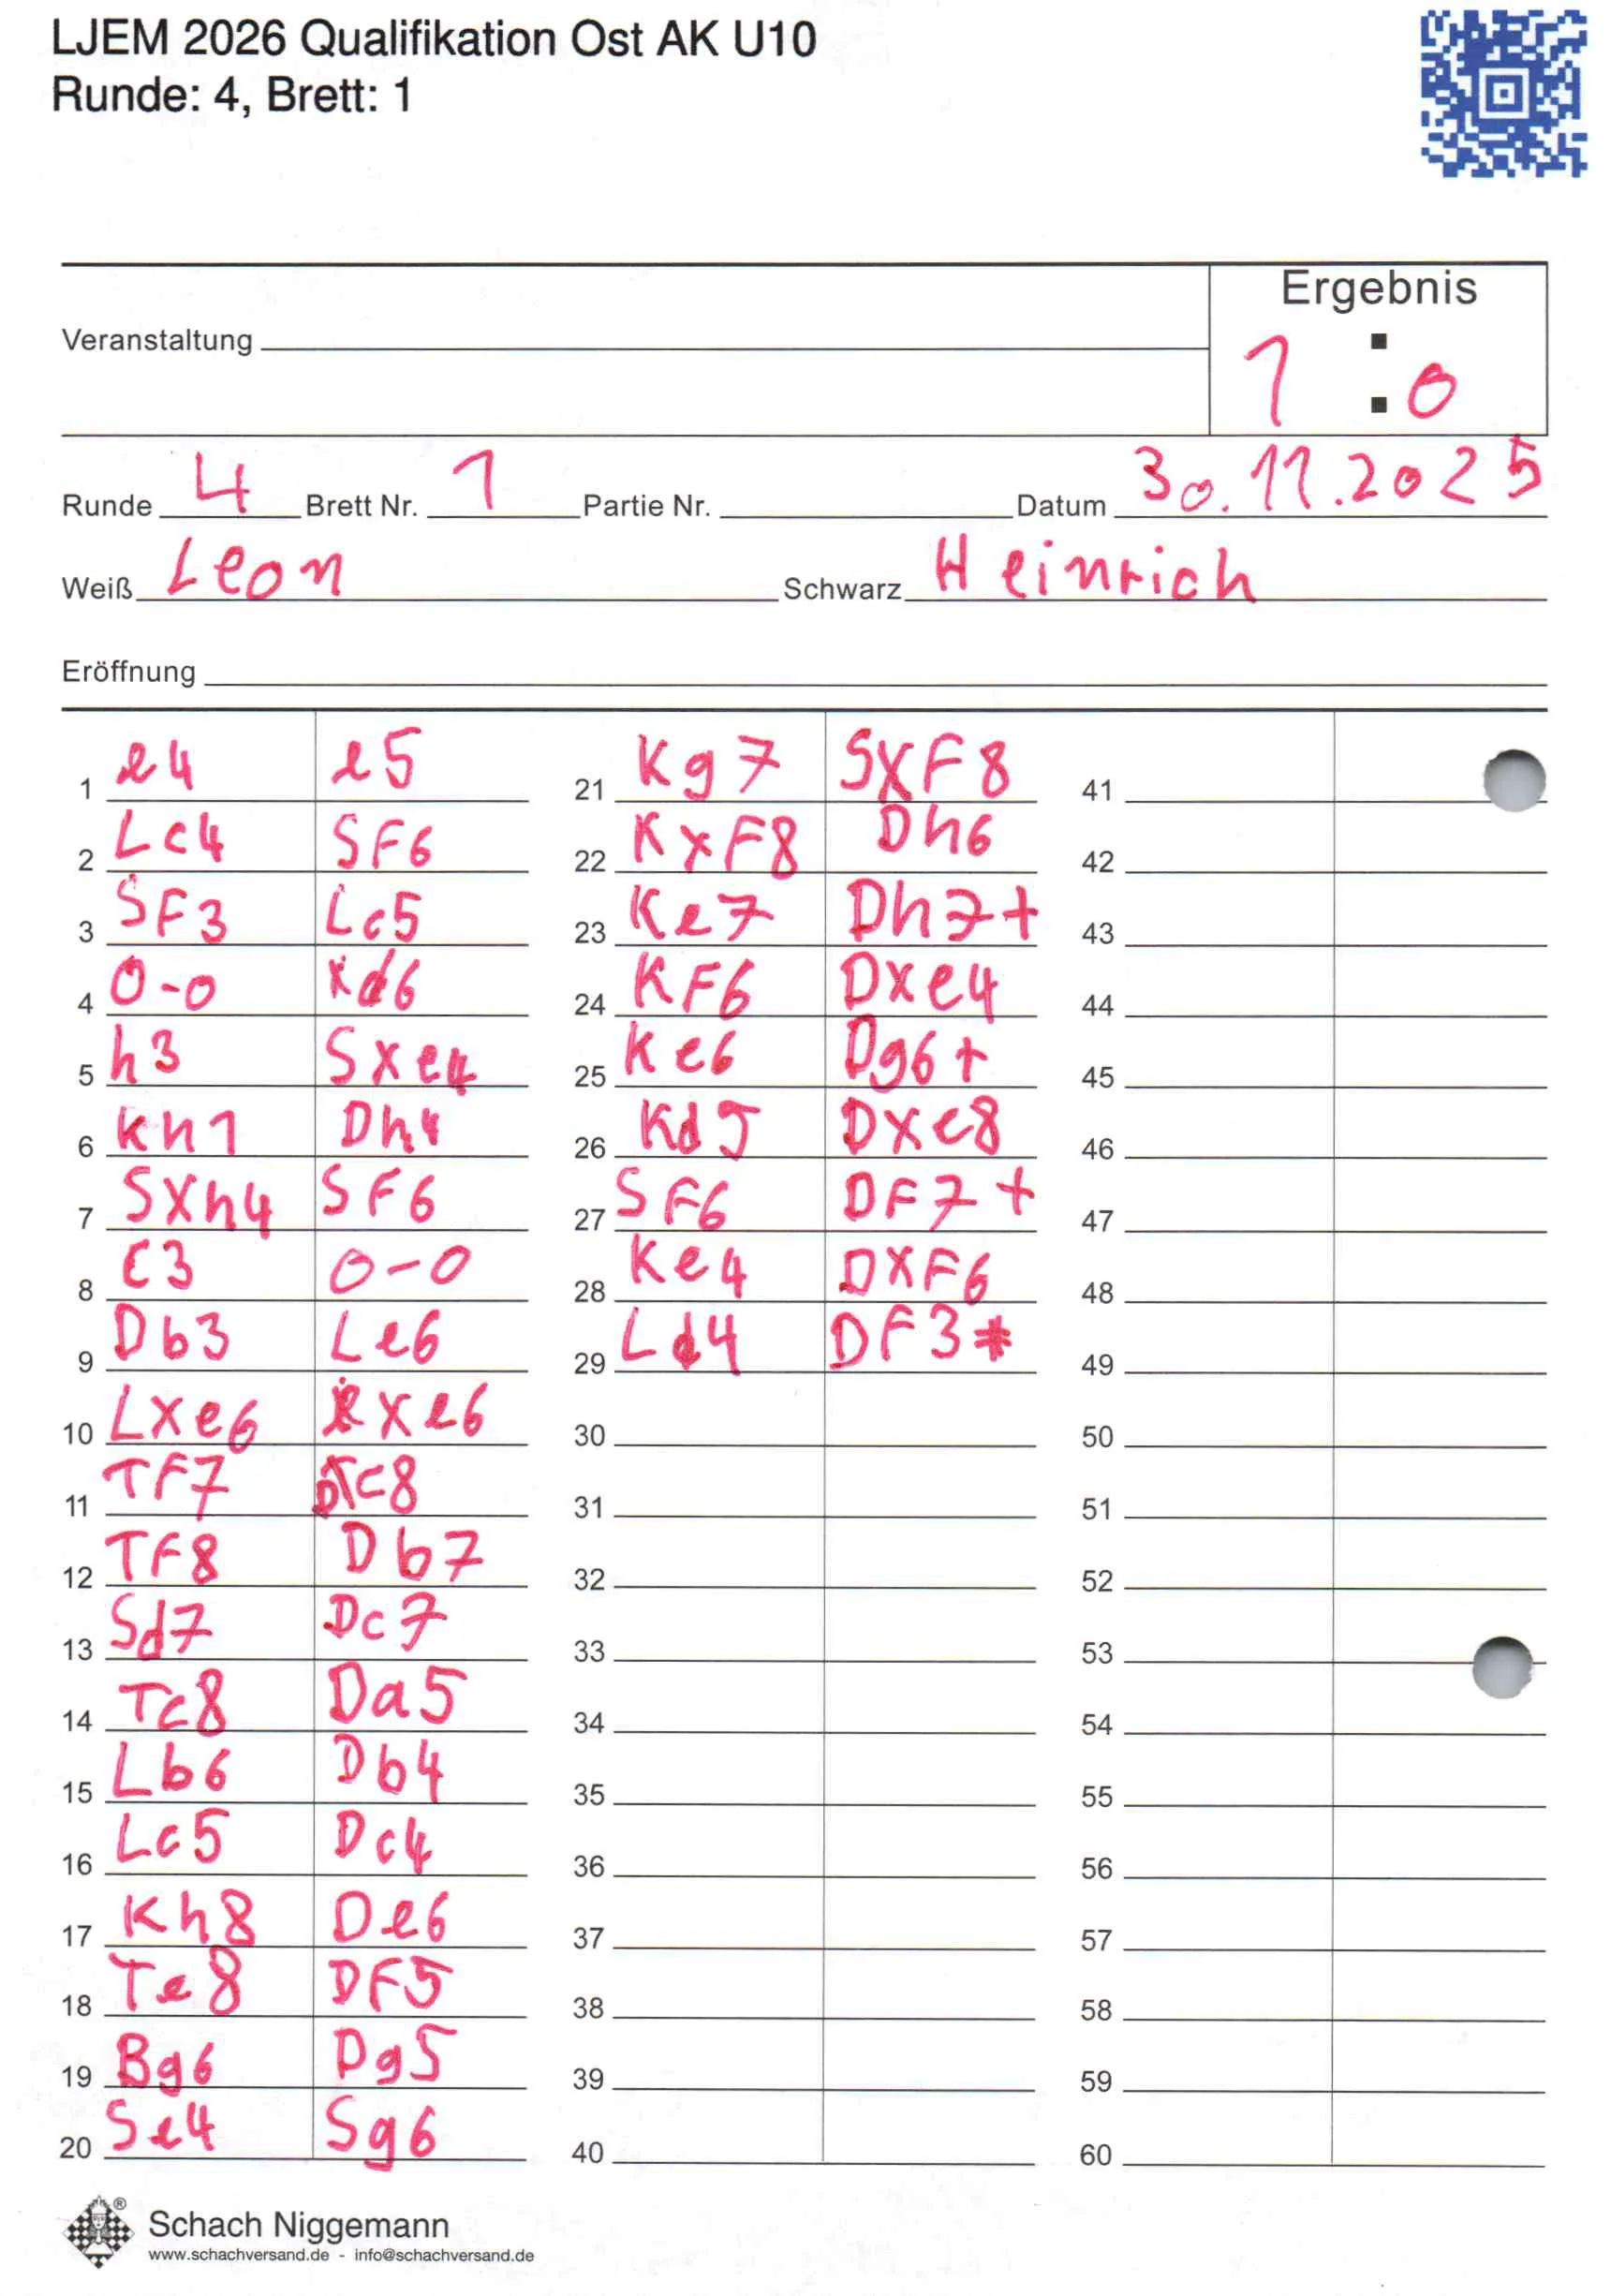 LJEM 2026 Qualifikation Ost AK U10
Runde: 4, Brett: 1
Ergebnis
Veranstaltung
1 : 0
Runde 4 Brett Nr. 1 Partie Nr. Datum 30.11.2025
Weiß Leon Schwarz Heinrich
Eröffnung
1 e4 e5
2 Lc4 SF6
3 SF3 Lc5
4 0-0 d6
5 h3 Sxe4
6 Kh1 Dh4
7 SXh4 SF6
8 C3 0-0
9 Db3 Le6
10 LXe6 Xe6
11 TF7 c8
12 TF8 Db7
13 Sd7 Dc7
14 Tc8 Da5
15 Lb6 Db4
16 Lc5 Dc4
17 Kh8 De6
18 Te8 DF5
19 Bg6 Dg5
20 Se4 Sg6
21 Kg7 SXF8
22 KxF8 Dh6
23 Ke7 Dh7+
24 KF6 Dxe4
25 Ke6 Dg6+
26 Kd5 DXe8
27 SF6 DF7+
28 Ke4 DXF6
29 Ld4 DF3#
30
31
32
33
34
35
36
37
38
39
40
41
42
43
44
45
46
47
48
49
50
51
52
53
54
55
56
57
58
59
60
® Schach Niggemann
www.schachversand.de - info@schachversand.de